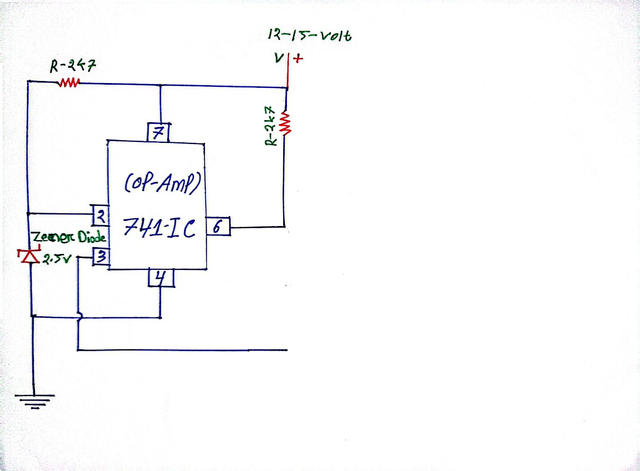 12-15-volt
V +
R-2k7
R-2k7
7
(OP-AMP)
741-IC
2
6
Zener Diode
2.5V
3
4